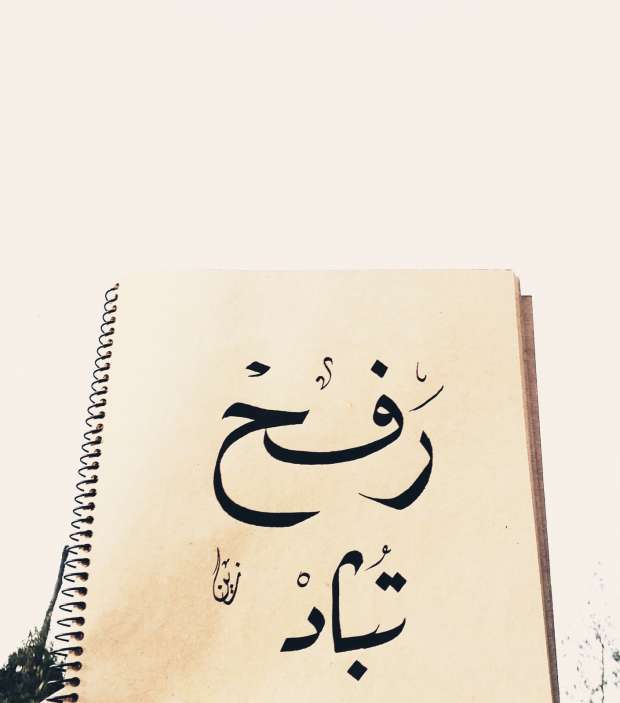 رَفح
تُبادْ
زين